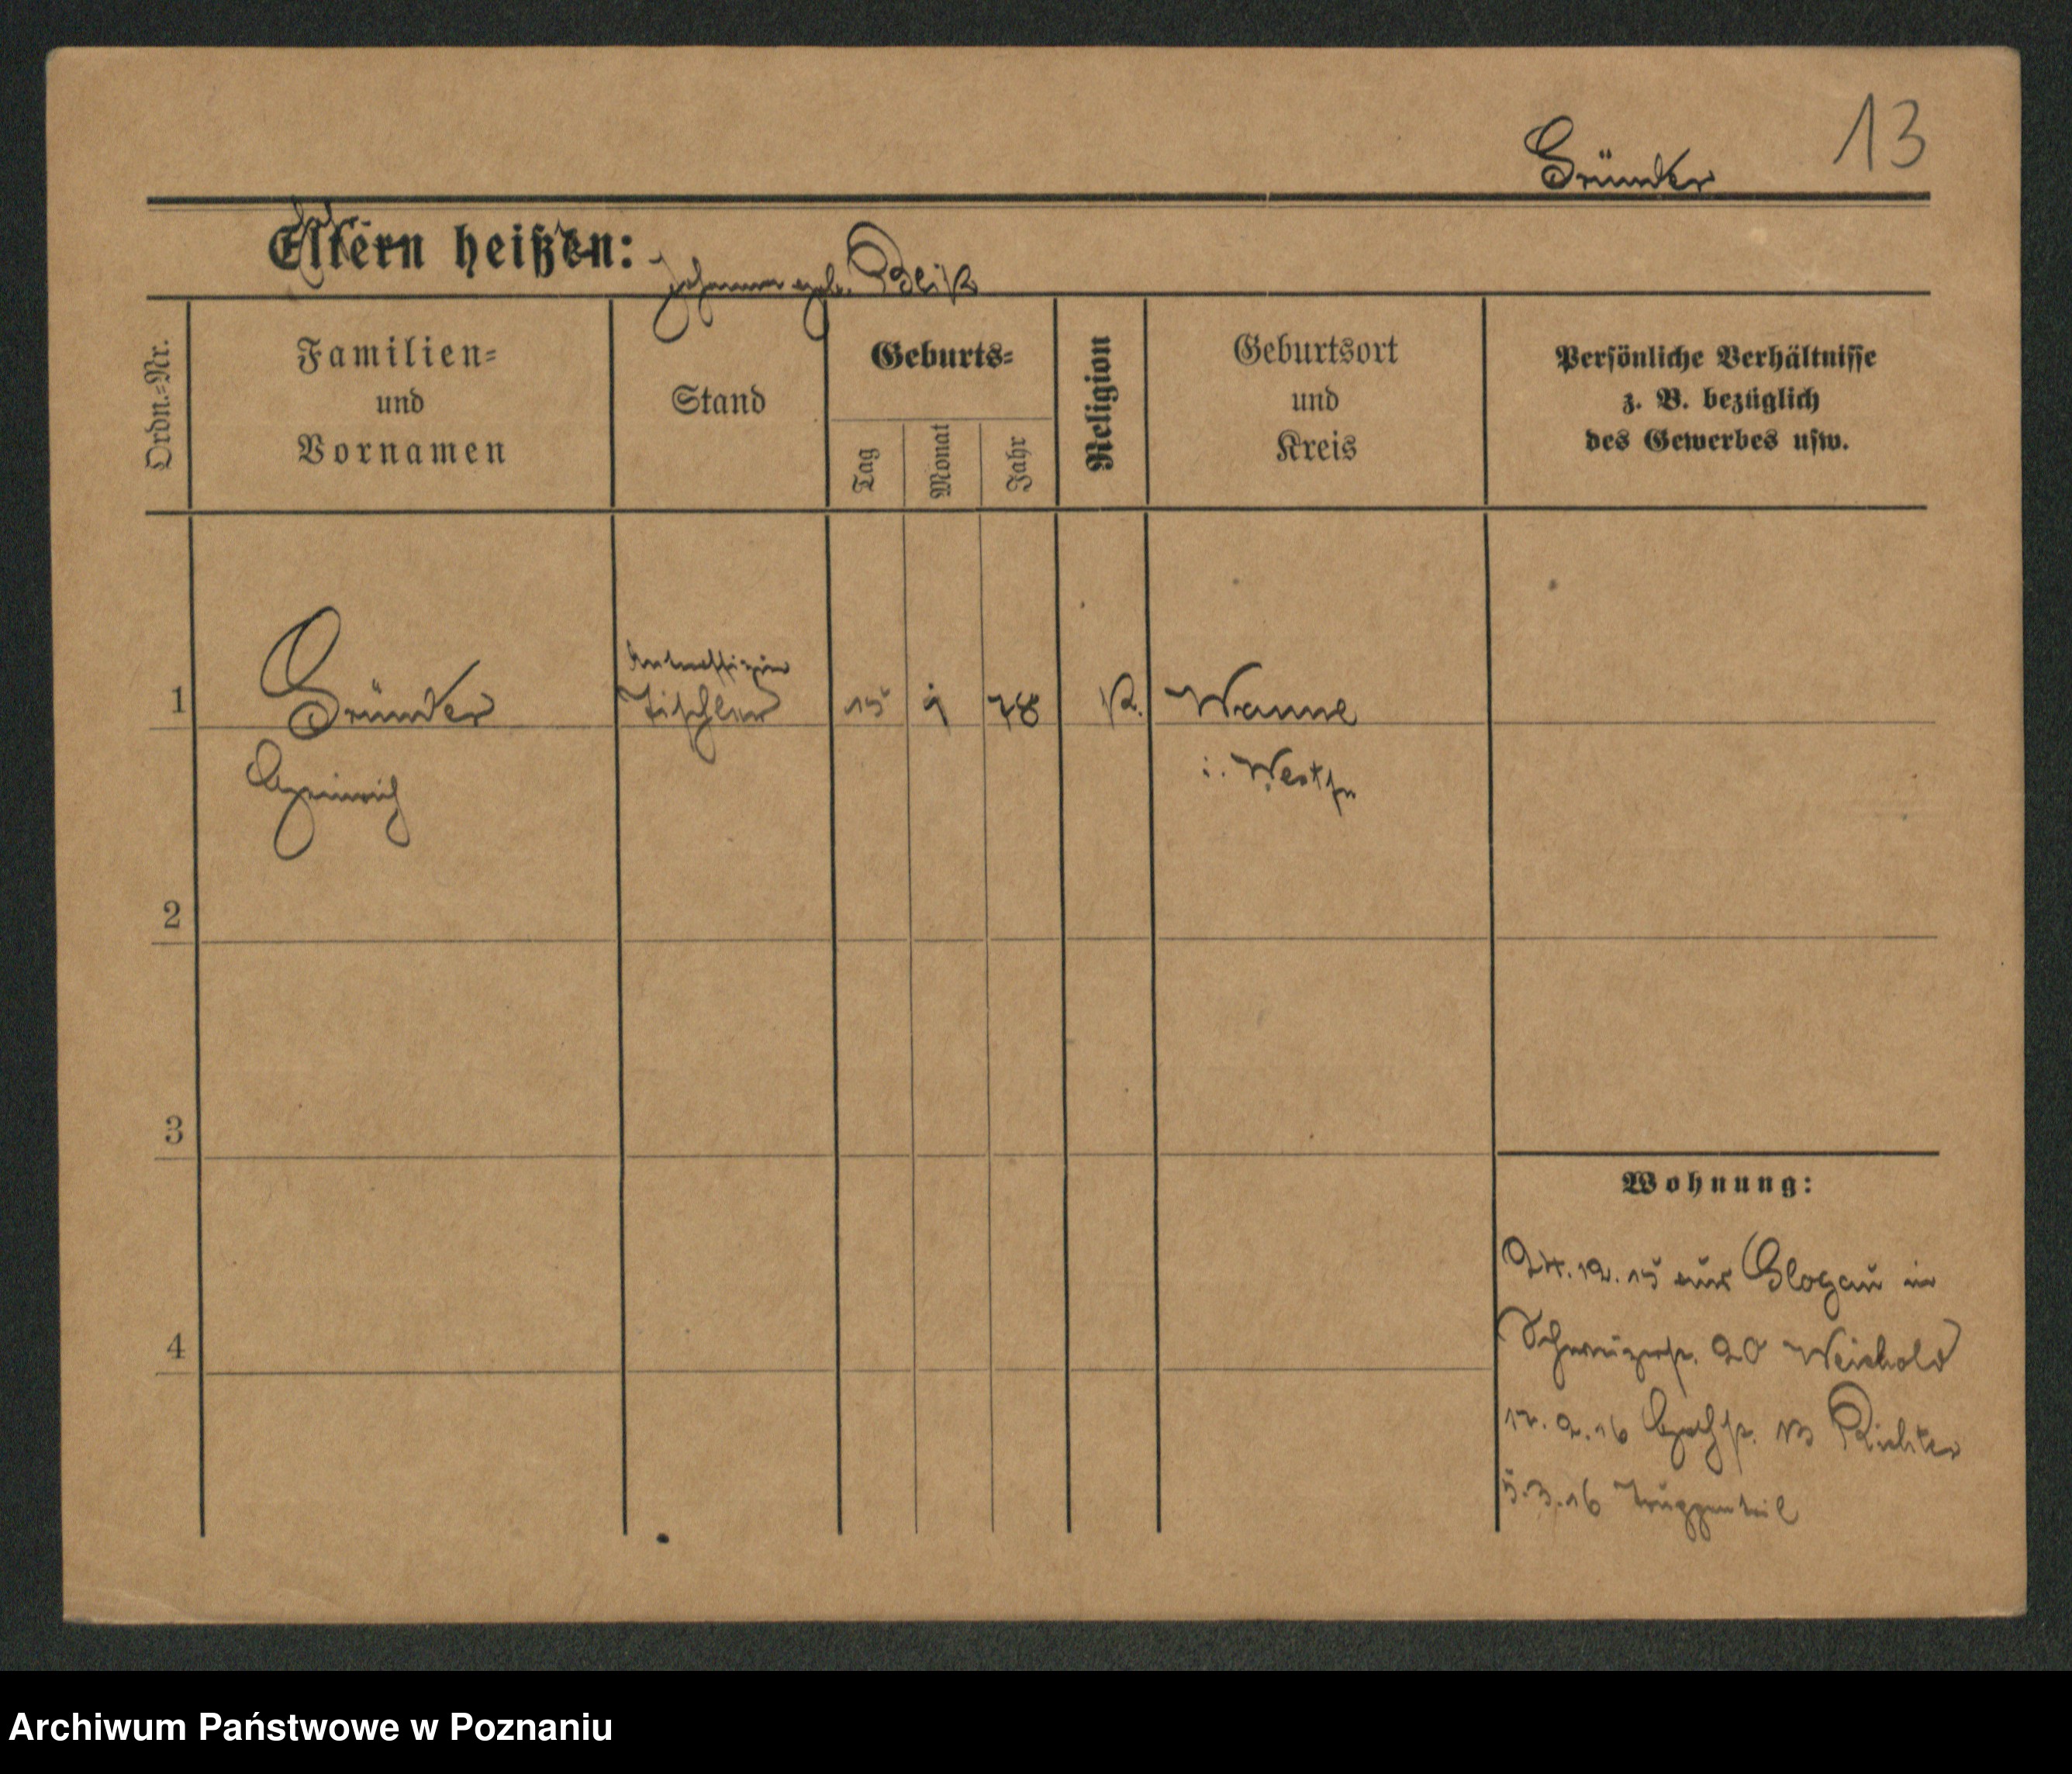 13
Gründer
Eltern heißen:
geb. Bleik
Ordn.=Nr.
Familien=
und
Vornamen
Stand
Geburts=
Tag
Monat
Jahr
Religion
Geburtsort
und
Kreis
Persönliche Verhältnisse
z. B. bezüglich
des Gewerbes usw.
Unteroffizier
1 Gründer Tischler 15 9 78 K. Wanne
Heinrich i. Westf
2
3
4
Wohnung:
24.12.15 aus Glogau in
20 Weichold
12.2.16 13 Richter
5.3.16 Truppenteil
Archiwum Państwowe w Poznaniu